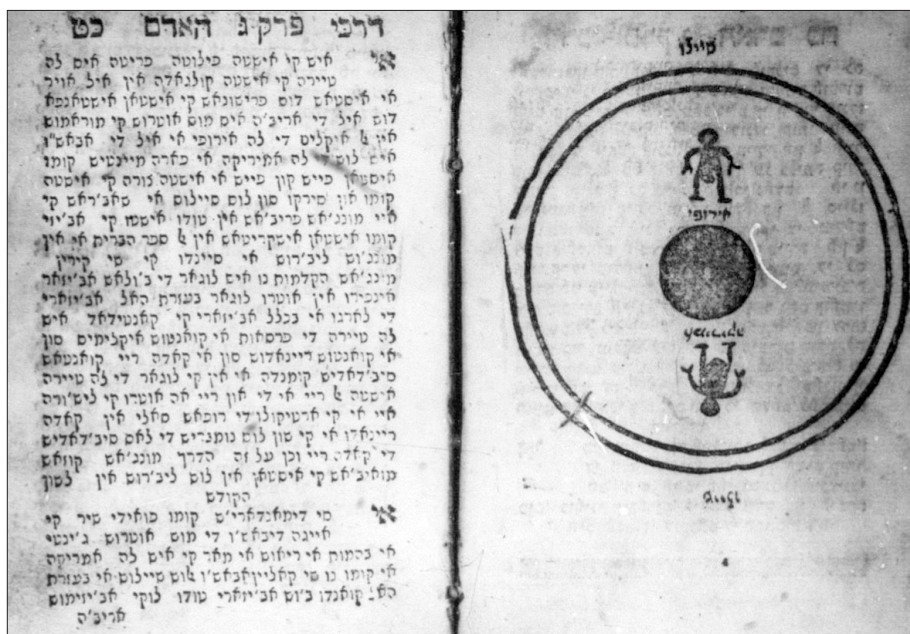 דרכי פרק ג האדם כט
אי איש קי אישטה פילוטה פריטה אים לה
טיירה קי אישטה קולגאדה אין איל אויר
אי איסטאש לוס פרישונאש קי אישטאן אישטאנפא
דוש איל די אריב'ה אים מוס אוטרוש קי מוראמוש
אין ﭏ איקלים די לה אירופי אי איל די אבאש"ו
איש לוש די לה אמיריקה אי פארה מיינטיש קומו
איסטאן פייש קון פייש אי אישטה זורה קי אישטה
קומו און סירקו סון לוס סיילוס אי שאב'ראש קי
איי מונג'אש פריב'אש אין טודו אישטו קי אב'יזי
קומו אישטאן אישקריטאש אין ﭏ ספר הברית אי אין
מונג'וש ליב'רוש אי סיינדו קי סי קירין
מונג'אש הקלמות נו איש לוגאר די ב'ולאש אב'יזאר
אין אוטרו לוגאר בעזרת האל אב'יזארי
די לארגו אי בכלל אב'יזארי קי איש
לה טיירה די פרסאות אי קואנטוש איקלימים סון
אי קואנטוש ריינאדוש סון אי קאדה ריי קואנטאש
סיב'דאדיש קומנדה אי אין קי לוגאר די לה טיירה
אישטה ﭏ ריי אי די און ריי אה אוטרו קי ליש'ורה
איי אי קי ארטיקולו די רופאש סאלי אין קאדה
ריינאדו אי קי שון לוש נומבריש די לאס סיב'דאדיש
די קאדה ריי וכן על זה הדרך מונג'אש קוזאש
מואיב'אש קי אישטאן אין לוש ליב'רוש אין לשון
הקודש
אי סי דימאנדארי"ש קומו פואילי שיר קי
אייגה דיבאש'ו די מוש אוטרוש ג'ינטי
אי בהמות אי ריאוש אי מאר קי איש לה אמריקה
אי קומו נו שי קאליין אבאש'ו ﭏוש סיילוש אי בעזרת
האל קואנדו ב'וש אב'יזארי טודו לוקי אב'יזימוש
אריב'ה
סיילו
אירופי
סיילו